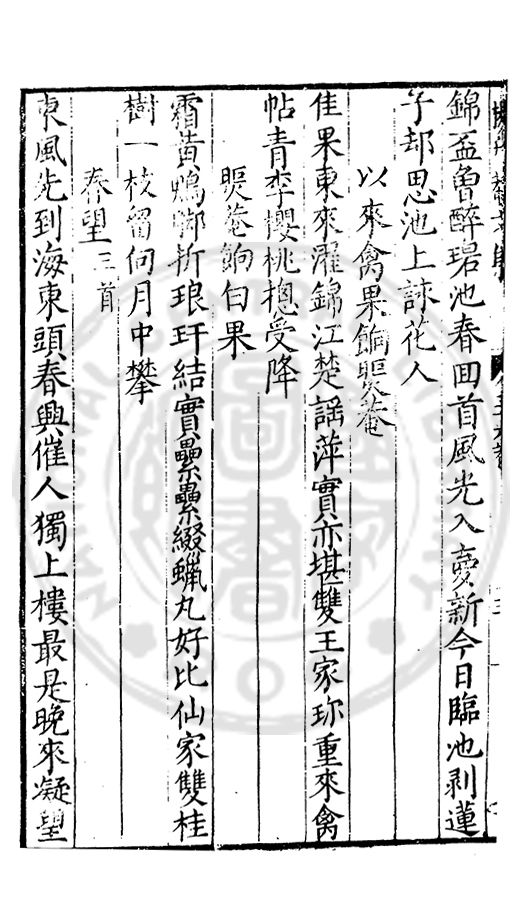 錦盃曾醉碧池春囬首風光入夣新今日臨池剥蓮
子却思池上詠花人
以來禽果餉㬉菴
佳果東來濯錦江楚謡萍實亦堪雙王家珎重來禽
帖青李櫻桃揔受降
㬉菴餉白果
霜黃鴨脚折琅玕結實纍纍綴蠟丸好比仙家雙桂
樹一枝留向月中攀
春望三首
東風先到海東頭春興催人獨上樓最是晚來凝望